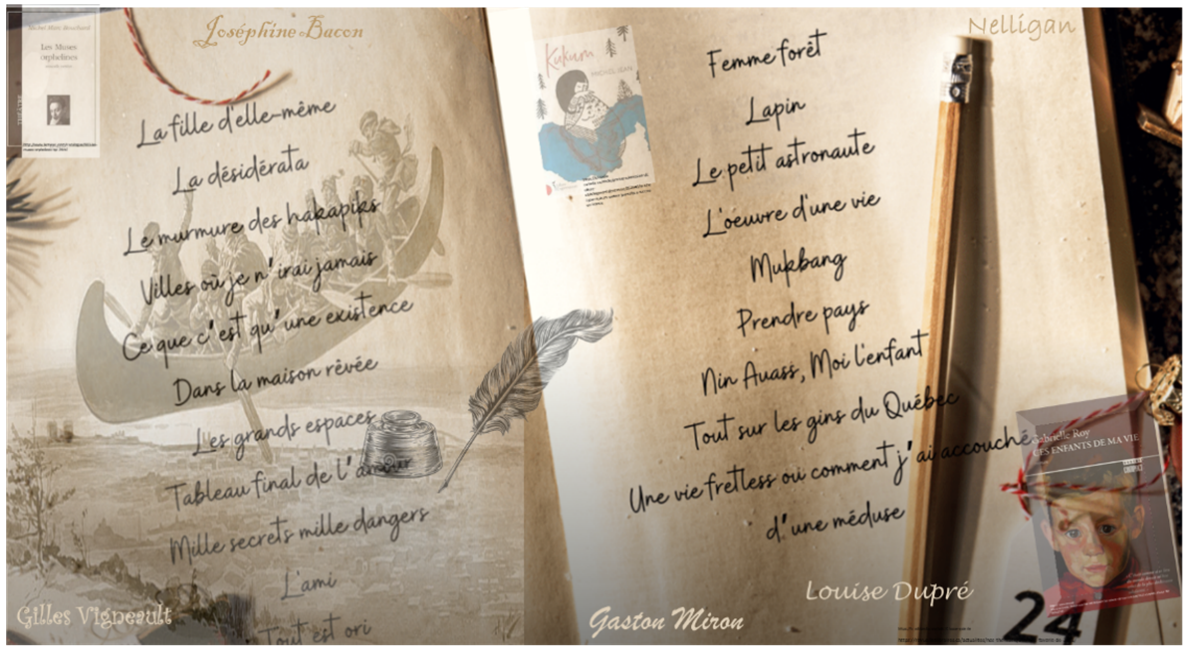 Michel Marc Bouchard
Les Muses
orphelines
THÉÂTRE
Joséphine Bacon
La fille d'elle-même
La désidérata
Le murmure des hakapiks
Villes où je n'irai jamais
Ce que c'est qu'une existence
Dans la maison rêvée
Les grands espaces
Tableau final de l'amour
Mille secrets mille dangers
L'ami
Tout est ori
Gilles Vigneault
Kukum
MICHEL JEAN
Nelligan
Femme forêt
Lapin
Le petit astronaute
L'oeuvre d'une vie
Mukbang
Prendre pays
Nin Auass, Moi l'enfant
Tout sur les gins du Québec
Une vie fretless ou comment j'ai accouché
d'une méduse
Gabrielle Roy
CES ENFANTS DE MA VIE
Louise Dupré
Gaston Miron
24